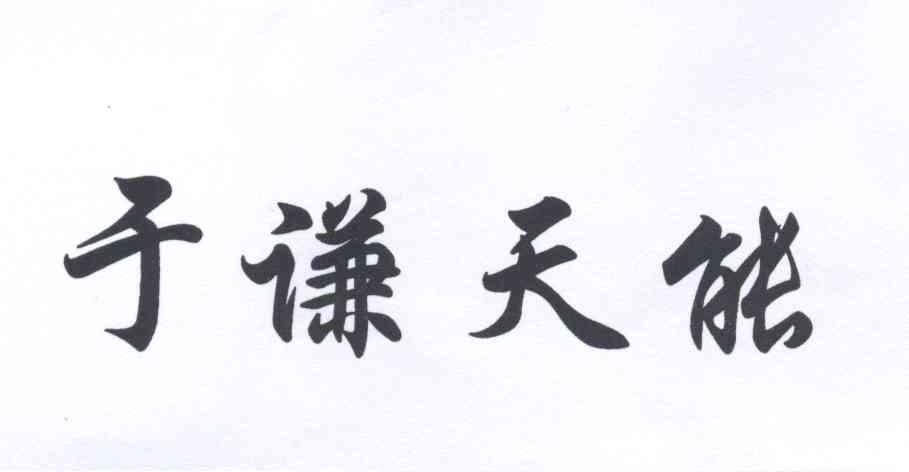 于谦天能